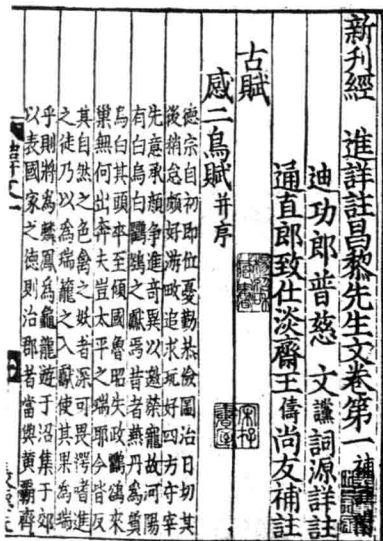 新刊經　進詳註昌黎先生文卷第一
迪功郎普慈　文讜詞源詳註
通直郎致仕淡齋王儔尚友補註
古賦
感二鳥賦并序
德宗自初即位憂勤恭儉圖治日切其
後稍怠頗好游畋追求玩好四方守宰
先意承顏爭進奇異以邀榮寵故河陽
有白烏白鸜鵒之獻焉昔者燕丹為質
烏白其頭卒至傾國魯昭失政鸜鵒來
巢無何出奔夫豈太平之瑞耶今皆反
其自然之色禽之妖者深可畏愕者進
之徒乃以為瑞籠之入獻使其果為瑞
乎則將為麟鳳為龜龍遊于沼集于郊
以表國家之德則治郡者當與黃霸齊